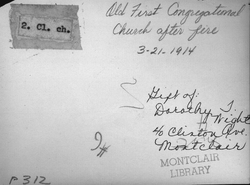 2. Cl. ch.
Old First Congregational
Church after fire
3-21-1914
Gift of:
Dorothy T.
Wight
46 Clinton Ave.
Montclair
MONTCLAIR
LIBRARY
P312